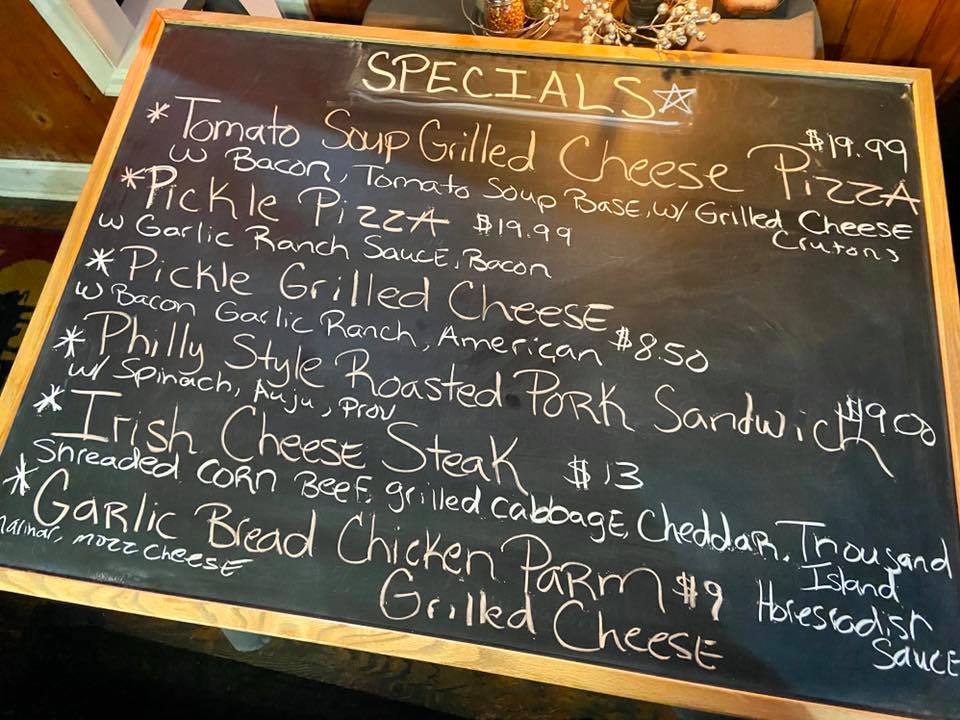 SPECIALS
* Tomato Soup Grilled Cheese Pizza $19.99
w Bacon, Tomato Soup Base, w/ Grilled Cheese
Crutons
* Pickle Pizza $19.99
w Garlic Ranch Sauce, Bacon
* Pickle Grilled Cheese
w Bacon Garlic Ranch, American $8.50
* Philly Style Roasted Pork Sandwich $9.00
w/ Spinach, Auju, Prov
* Irish Cheese Steak $13
Shreaded Corn Beef, grilled cabbage, Cheddar, Thousand
Island
Horesradish
Sauce
* Garlic Bread Chicken Parm $9
Grilled Cheese
marinar, mozz cheese